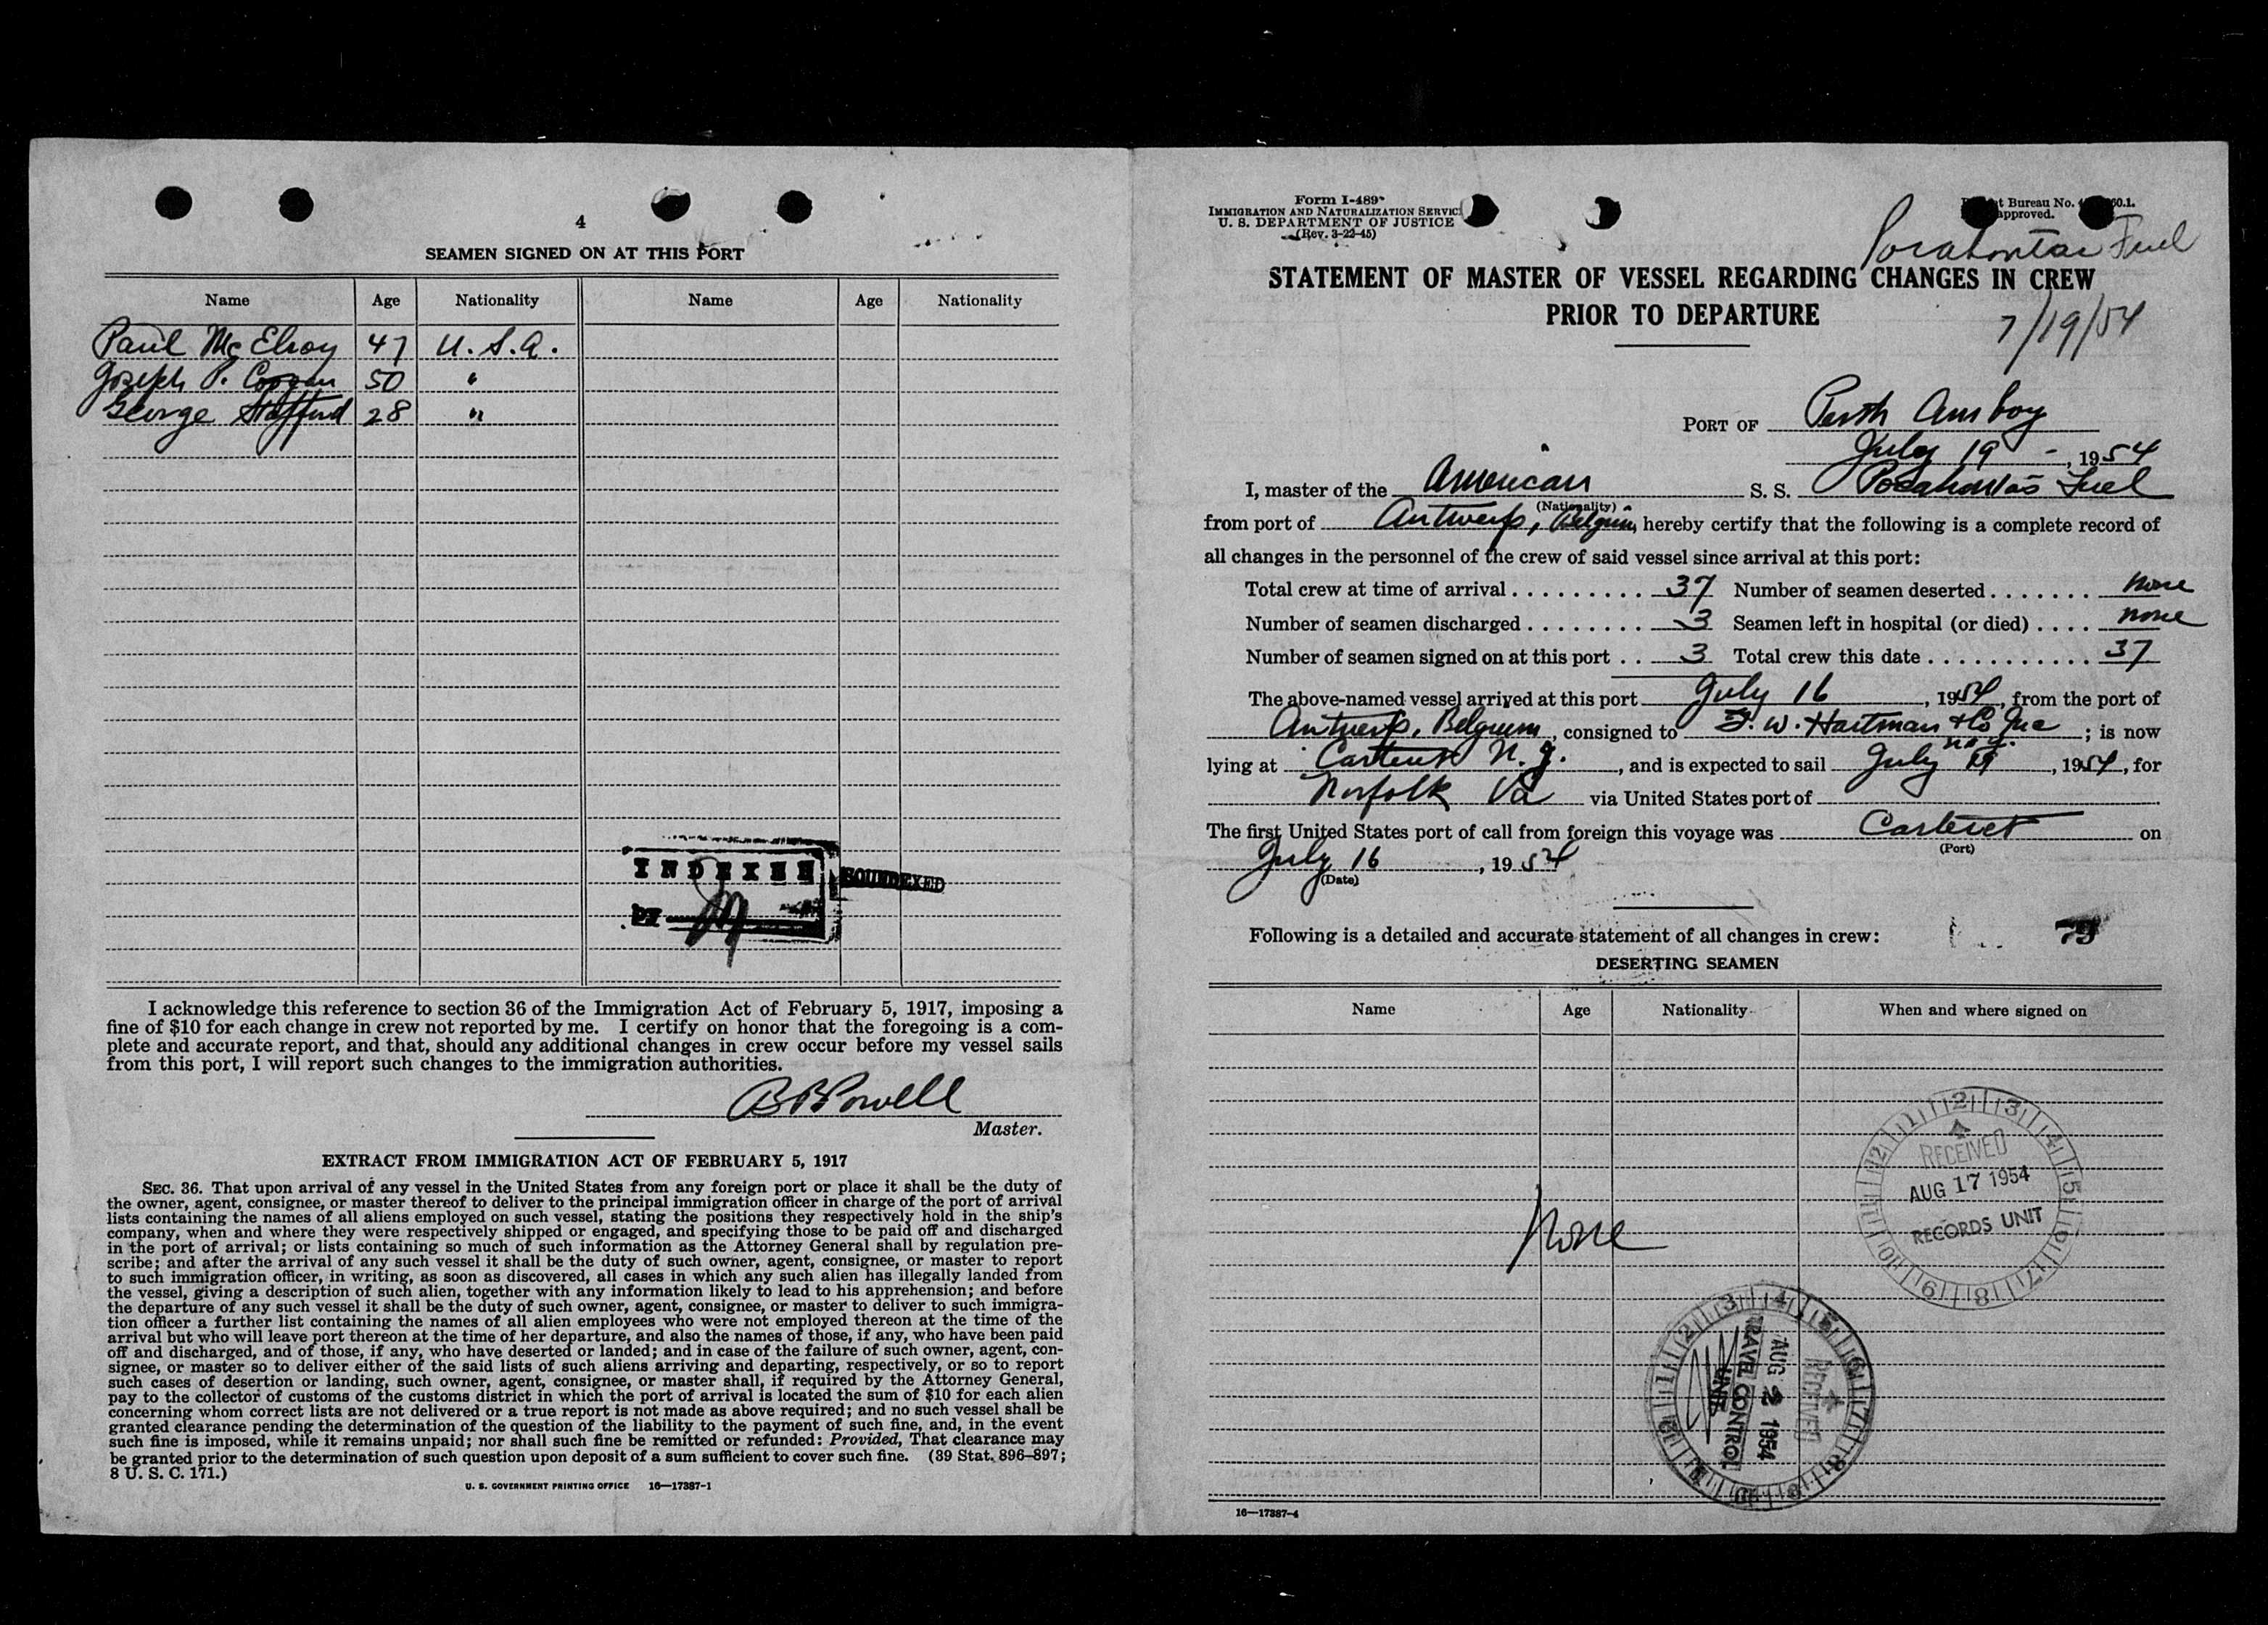 4
SEAMEN SIGNED ON AT THIS PORT
Name Age Nationality Name Age Nationality
Paul McElroy 47 U.S.A.
Joseph P. 50 "
George Stafford 28 "
INDEXED
BY
SOUNDEXED
I acknowledge this reference to section 36 of the Immigration Act of February 5, 1917, imposing a
fine of $10 for each change in crew not reported by me. I certify on honor that the foregoing is a com-
plete and accurate report, and that, should any additional changes in crew occur before my vessel sails
from this port, I will report such changes to the immigration authorities.
B B Powell
Master.
EXTRACT FROM IMMIGRATION ACT OF FEBRUARY 5, 1917
SEC. 36. That upon arrival of any vessel in the United States from any foreign port or place it shall be the duty of
the owner, agent, consignee, or master thereof to deliver to the principal immigration officer in charge of the port of arrival
lists containing the names of all aliens employed on such vessel, stating the positions they respectively hold in the ship's
company, when and where they were respectively shipped or engaged, and specifying those to be paid off and discharged
in the port of arrival; or lists containing so much of such information as the Attorney General shall by regulation pre-
scribe; and after the arrival of any such vessel it shall be the duty of such owner, agent, consignee, or master to report
to such immigration officer, in writing, as soon as discovered, all cases in which any such alien has illegally landed from
the vessel, giving a description of such alien, together with any information likely to lead to his apprehension; and before
the departure of any such vessel it shall be the duty of such owner, agent, consignee, or master to deliver to such immigra-
tion officer a further list containing the names of all alien employees who were not employed thereon at the time of the
arrival but who will leave port thereon at the time of her departure, and also the names of those, if any, who have been paid
off and discharged, and of those, if any, who have deserted or landed; and in case of the failure of such owner, agent, con-
signee, or master so to deliver either of the said lists of such aliens arriving and departing, respectively, or so to report
such cases of desertion or landing, such owner, agent, consignee, or master shall, if required by the Attorney General,
pay to the collector of customs of the customs district in which the port of arrival is located the sum of $10 for each alien
concerning whom correct lists are not delivered or a true report is not made as above required; and no such vessel shall be
granted clearance pending the determination of the question of the liability to the payment of such fine, and, in the event
such fine is imposed, while it remains unpaid; nor shall such fine be remitted or refunded: Provided, That clearance may
be granted prior to the determination of such question upon deposit of a sum sufficient to cover such fine. (39 Stat. 896–897;
8 U. S. C. 171.)
U. S. GOVERNMENT PRINTING OFFICE 16—17387-1
Form I-489
IMMIGRATION AND NATURALIZATION SERVIC
U. S. DEPARTMENT OF JUSTICE
(Rev. 3-22-45)
t Bureau No. 60.1.
approved.
Pocahontas Fuel
STATEMENT OF MASTER OF VESSEL REGARDING CHANGES IN CREW
PRIOR TO DEPARTURE
7/19/54
PORT OF Perth Amboy
July 19 -, 1954
I, master of the American S. S. Pocahontas Fuel
(Nationality)
from port of Antwerp, Belgium, hereby certify that the following is a complete record of
all changes in the personnel of the crew of said vessel since arrival at this port:
Total crew at time of arrival . . . . . . . . . . 37 Number of seamen deserted . . . . . . . none
Number of seamen discharged . . . . . . . . 3 Seamen left in hospital (or died) . . . . none
Number of seamen signed on at this port . . 3 Total crew this date . . . . . . . . . . . 37
The above-named vessel arrived at this port July 16, 1954, from the port of
Antwerp, Belgium, consigned to F. W. Hartman & Co Inc N.Y.; is now
lying at Carteret N. J., and is expected to sail July 19, 1954, for
Norfolk Va via United States port of
The first United States port of call from foreign this voyage was Carteret on
(Port)
July 16, 1954
(Date)
Following is a detailed and accurate statement of all changes in crew: 79
DESERTING SEAMEN
Name Age Nationality When and where signed on
None
RECEIVED
AUG 17 1954
RECORDS UNIT
RECEIVED
AUG 2 1954
TRAVEL CONTROL
UNIT
16—17387-4